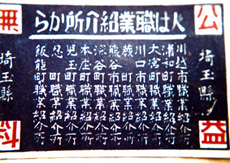 人は職業紹介所から
公益
無料
埼玉縣
川越市職業紹介所
浦和町職業紹介所
大宮町職業紹介所
川口町職業紹介所
町職業紹介所
熊谷町職業紹介所
本庄町職業紹介所
深谷町職業紹介所
児玉町職業紹介所
忍町職業紹介所
飯能町職業紹介所
埼玉縣